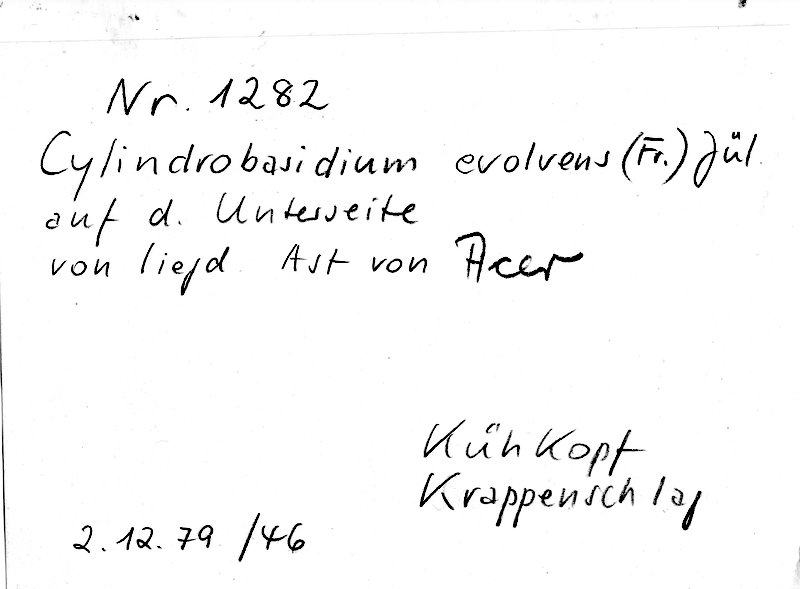 Nr. 1282
Cylindrobasidium evolvens (Fr.) Jül.
auf d. Unterseite
von liegd. Ast von Acer
Kühkopf
Krappenschlag
2.12.79 /46